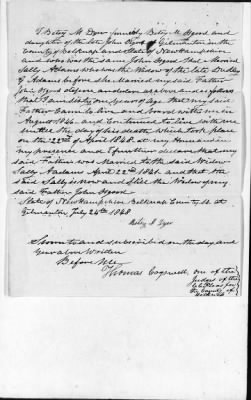 I Betsy M Dow formerly Betsy M. Ogood and
daughter of the late John Ogood of Gilmanton in the
County of Belknap and State of New Hampshire
and who was the same John Ogood that Married
Sally Adams who was the Widow of the late Dudley
Adams before she Married my said Father
John Ogood depose and on as follows
that I am sixty one years of Age that my said
Father came to live and board with me in
August 1846 and Continued to live with me
until the day of his death which took place
on the 22nd of April 1848, at my House and in
my presence and I further declare that my
said Father was Married to the said Widow
Sally Adams April 22nd 1841, and that the
said Sally is now and still the Widow of my
said Father John Ogood
State of New Hampshire Belknap County SS at
Gilmanton July 24th 1848
Betsy M Dow
Sworn to and subscribed on the day and
year above written
Before Me
Thomas Cogswell one of the
Judges of the
Pleas for
the County of
Belknap